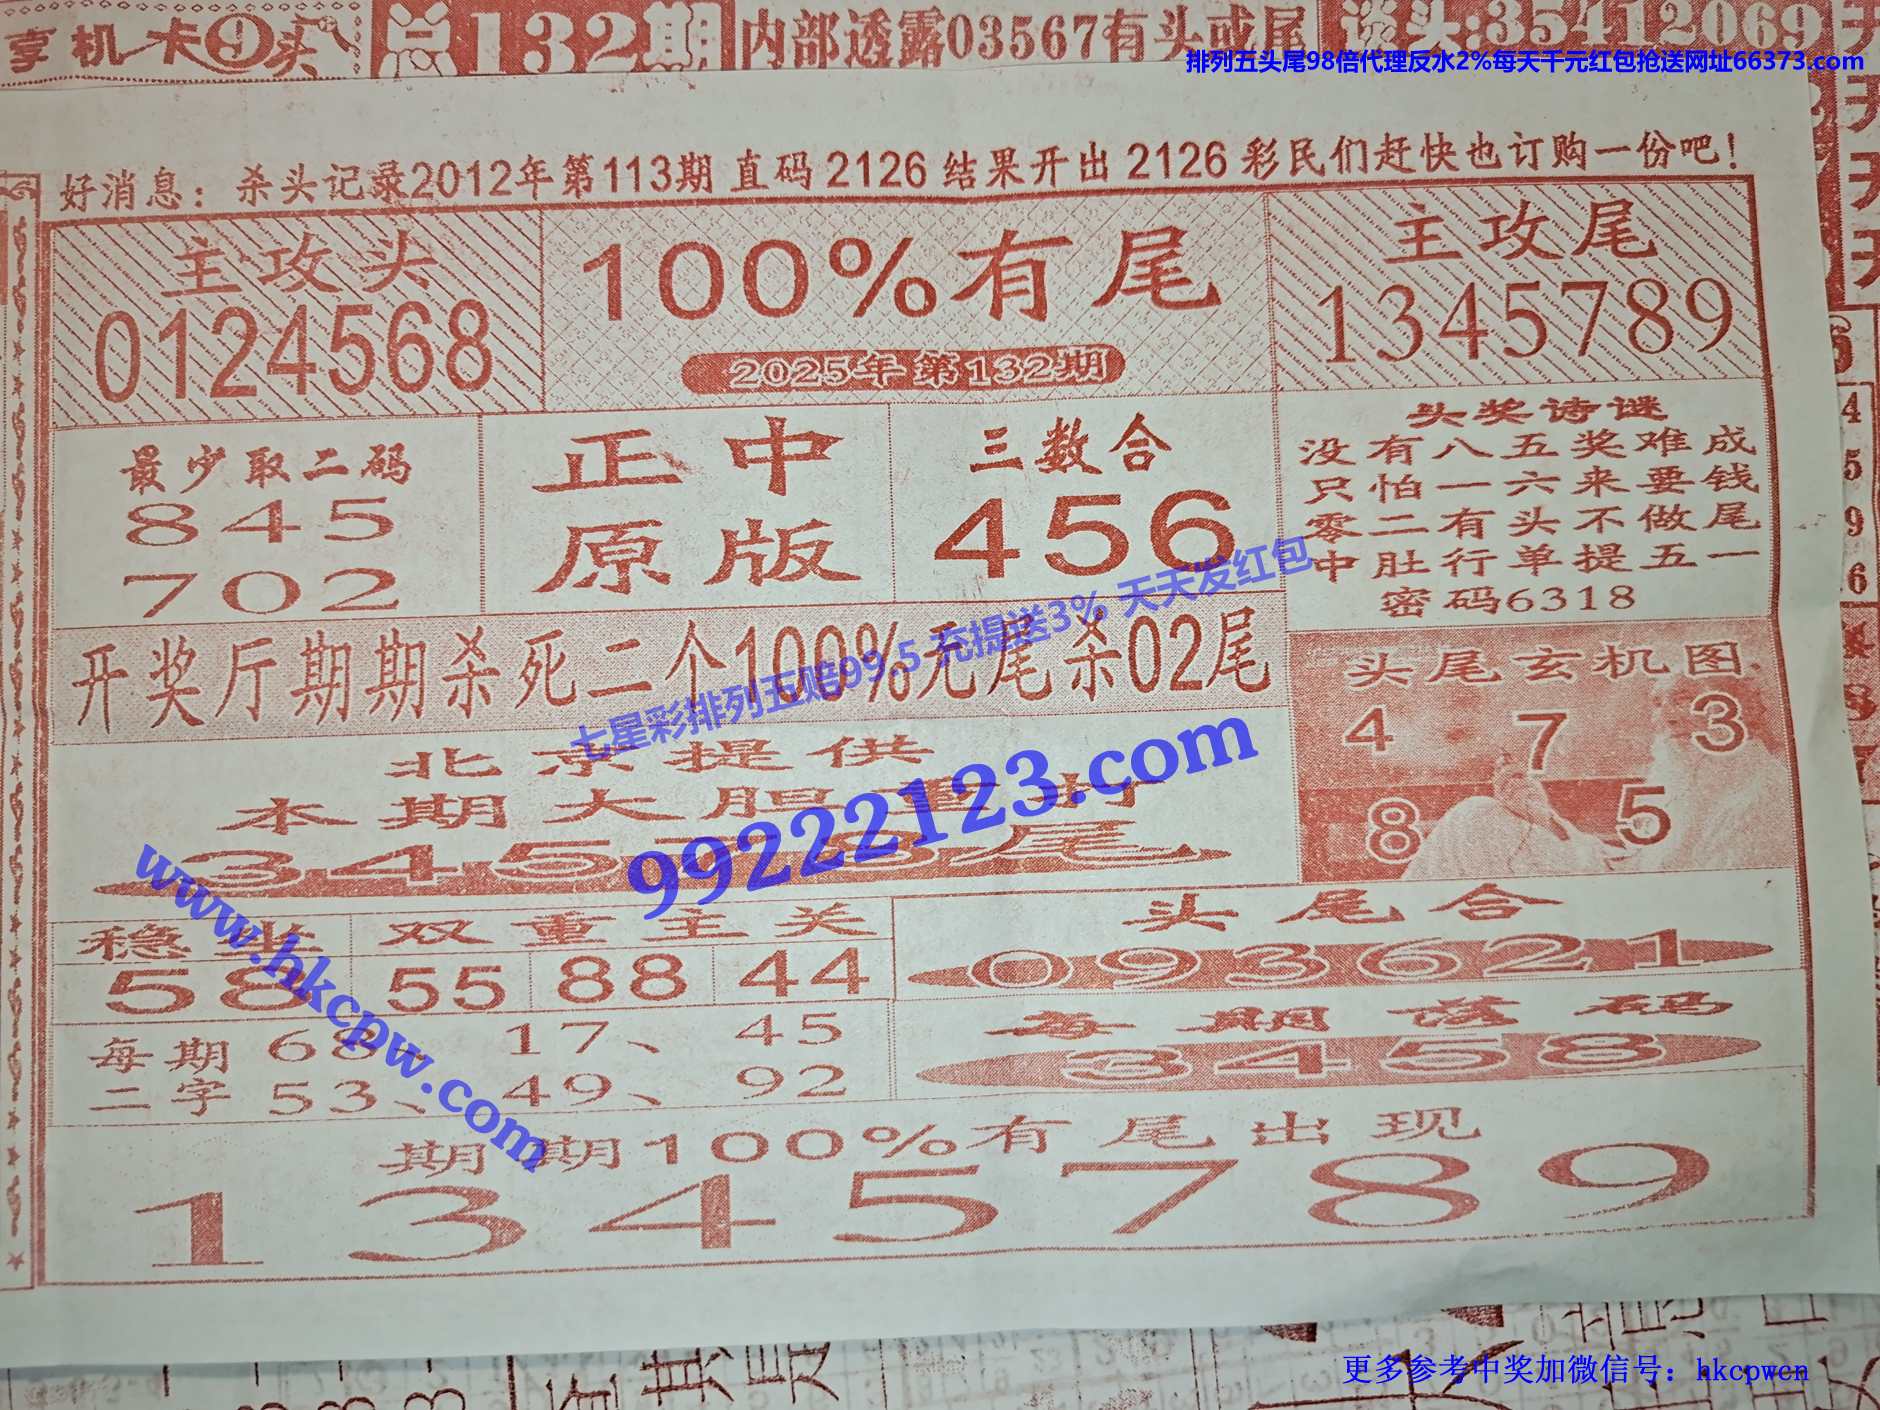 享机卡9头
总132期
内部透露03567有头或尾
谈头:35412069
排列五头尾98倍代理反水2%每天千元红包抢送网址66373.com
好消息：杀头记录2012年第113期 直码 2126 结果开出 2126 彩民们赶快也订购一份吧!
主攻头
0124568
100%有尾
2025年 第132期
主攻尾
1345789
最少取二码
845
702
正中
原版
三数合
456
头奖诗谜
没有八五奖难成
只怕一六来要钱
零二有头不做尾
中肚行单提五一
密码6318
开奖厅期期杀死二个100%无尾杀02尾
七星彩排列五赔99.5 充提送3% 天天发红包
99222123.com
头尾玄机图
4 7 3
8 5
北京提供
本期大胆
尾
www.hkcpw.com
稳坐
58
双重主关
55 88 44
头尾合
093621
每期
二字
17、 45
53、 49、 92
每期落码
3458
期期100%有尾出现
1345789
更多参考中奖加微信号：hkcpwcn